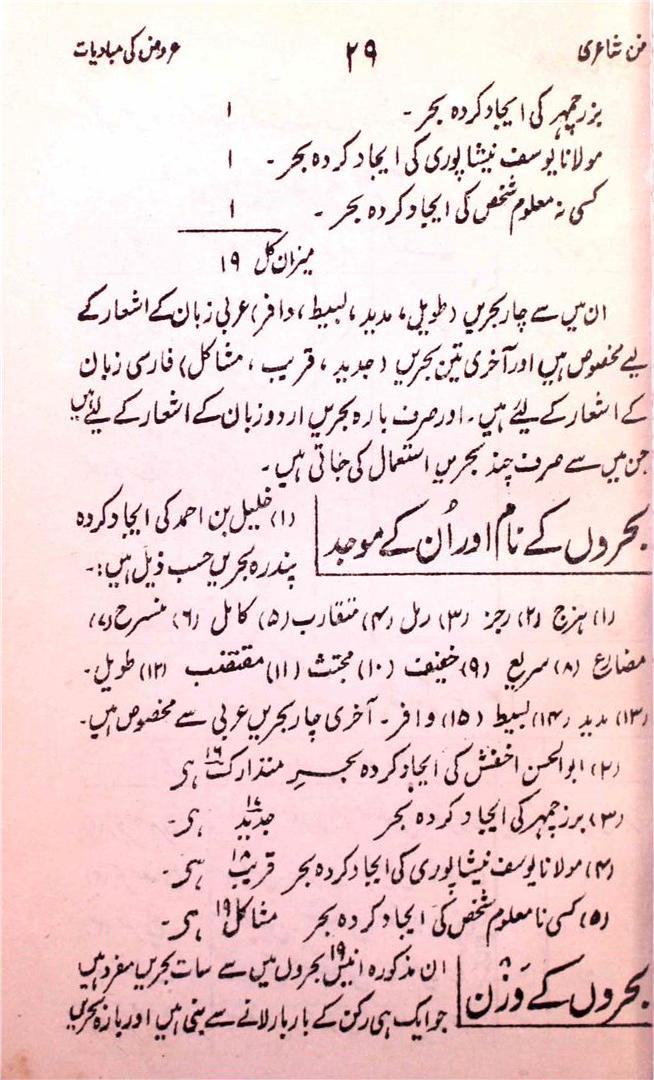 فن شاعری ۲۹ عروض کی مبادیات
بزرجمہر کی ایجاد کردہ بحر۔ ۱
مولانا یوسف نیشاپوری کی ایجاد کردہ بحر۔ ۱
کسی نہ معلوم شخص کی ایجاد کردہ بحر۔ ۱
میزان کل ۱۹
ان میں سے چار بحریں (طویل، مدید، بسیط، وافر) عربی زبان کے اشعار کے
لیے مخصوص ہیں اور آخری تین بحریں (جدید، قریب، مشاکل) فارسی زبان
کے اشعار کے لیئے ہیں۔ اور صرف بارہ بحریں اردو زبان کے اشعار کے لیئے ہیں
جن میں سے صرف چند بحریں استعمال کی جاتی ہیں۔
بحروں کے نام اور اُن کے موجد
(۱) خلیل بن احمد کی ایجاد کردہ
پندرہ بحریں حسب ذیل ہیں:۔
(۱) ہزج (۲) رجز (۳) رمل (۴) متقارب (۵) کامل (۶) منسرح (۷)
مضارع (۸) سریع (۹) خفیف (۱۰) مجتث (۱۱) مقتضب (۱۲) طویل۔
(۱۳) مدید (۱۴) بسیط (۱۵) وافر۔ آخری چار بحریں عربی سے مخصوص ہیں۔
(۲) ابوالحسن اخفش کی ایجاد کردہ بحرِ متدارک ۱۶ ہی
(۳) برزجمہر کی ایجاد کردہ بحر جدید ۱۷ ہی۔
(۴) مولانا یوسف نیشاپوری کی ایجاد کردہ بحر قریب ۱۸ ہی۔
(۵) کسی نامعلوم شخص کی ایجاد کردہ بحر مشاکل ۱۹ ہی۔
بحروں کے وَزن
ان مذکورہ انیس ۱۹ بحروں میں سے سات بحریں مفرد ہیں
جو ایک ہی رکن کے بار بار لانے سے بنی ہیں اور بارہ بحریں